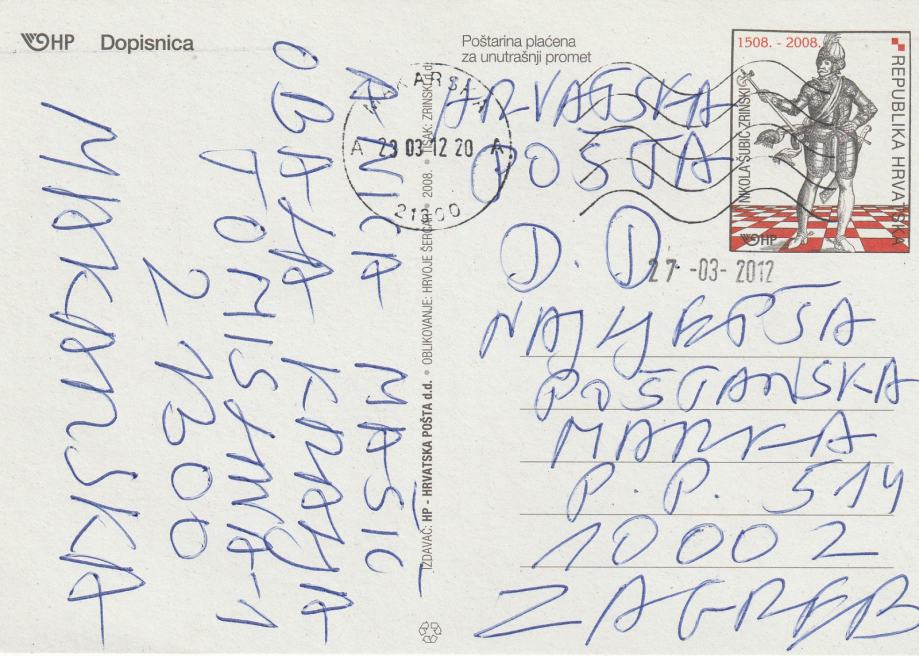 HP Dopisnica
Poštarina plaćena
za unutrašnji promet
1508. - 2008.
REPUBLIKA HRVATSKA
NIKOLA ŠUBIĆ ZRINSKI
HP
MAKARSKA
A 23 03 12 20 A
21300
27 -03- 2012
HRVATSKA
POŠTA
D. D.
NAJLJEPŠA
POŠTANSKA
MARKA
P. P. 514
10002
ZAGREB
IZDAVAČ: HP - HRVATSKA POŠTA d.d. • OBLIKOVANJE: HRVOJE ŠERCAR • 2008. • TISAK: ZRINSKI d.d.
ANICA MAŠIĆ
OBALA KRALJA
TOMISLAVA-1
21300
MAKARSKA